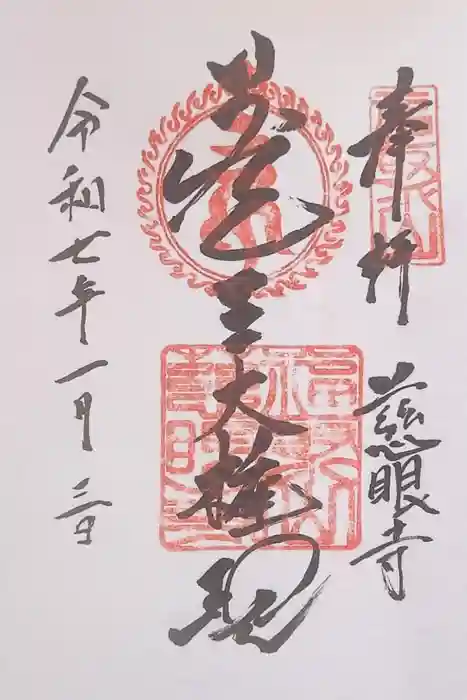 奉拝 慈眼寺
蔵王大権現
令和七年一月三日